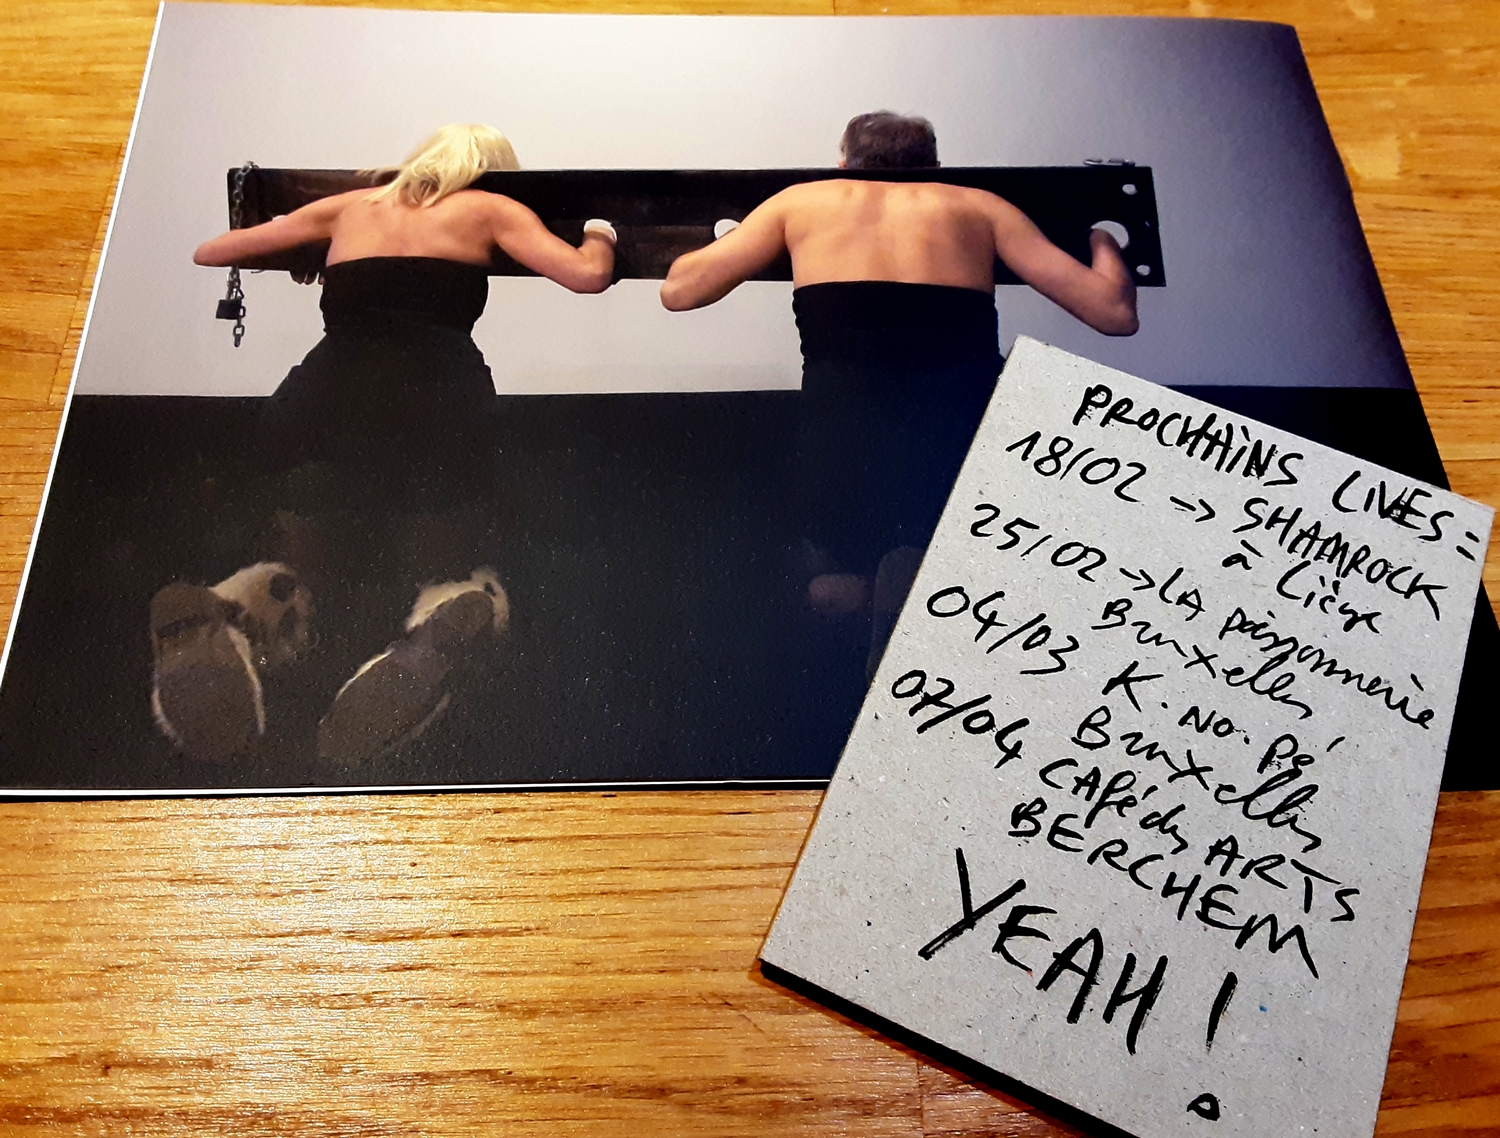 PROCHAINS LIVES :
18/02 -> SHAMROCK
à Liège
25/02 -> LA poissonnerie
Bruxelles
04/03 K. NO. Pé
Bruxelles
07/04 CAFé des ARTS
BERCHEM
YEAH !